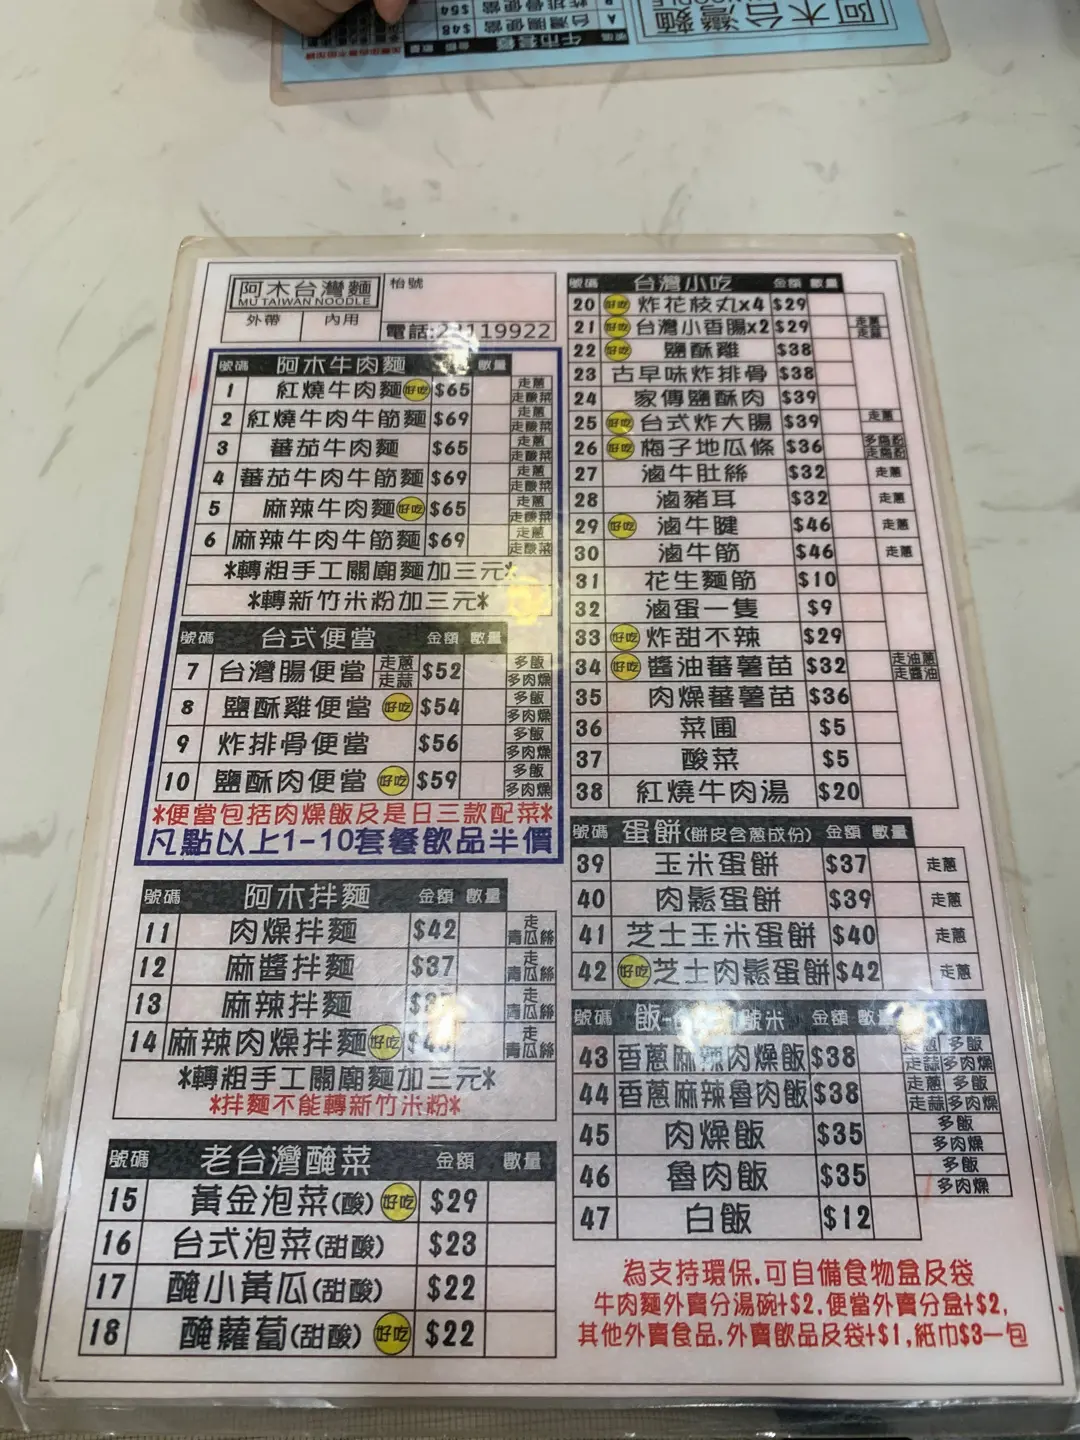 阿木台灣麵
A 台灣腸便當 $48
炸排骨便當 $54
阿木台灣麵
MU TAIWAN NOODLE
枱號
外帶 內用
電話:
號碼 阿木牛肉麵 數量
1 紅燒牛肉麵 好吃 $65 走蔥 走酸菜
2 紅燒牛肉牛筋麵 $69 走蔥 走酸菜
3 蕃茄牛肉麵 $65 走蔥 走酸菜
4 蕃茄牛肉牛筋麵 $69 走蔥 走酸菜
5 麻辣牛肉麵 好吃 $65 走蔥 走酸菜
6 麻辣牛肉牛筋麵 $69 走蔥 走酸菜
*轉粗手工關廟麵加三元*
*轉新竹米粉加三元*
號碼 台式便當 金額 數量
7 台灣腸便當 走蔥 走蒜 $52 多飯 多肉燥
8 鹽酥雞便當 好吃 $54 多飯 多肉燥
9 炸排骨便當 $56 多飯 多肉燥
10 鹽酥肉便當 好吃 $59 多飯 多肉燥
*便當包括肉燥飯及是日三款配菜*
凡點以上1-10套餐飲品半價
號碼 阿木拌麵 金額 數量
11 肉燥拌麵 $42 走青瓜絲
12 麻醬拌麵 $37 走青瓜絲
13 麻辣拌麵 走青瓜絲
14 麻辣肉燥拌麵 好吃 走青瓜絲
*轉粗手工關廟麵加三元*
*拌麵不能轉新竹米粉*
號碼 老台灣醃菜 金額 數量
15 黃金泡菜(酸) 好吃 $29
16 台式泡菜(甜酸) $23
17 醃小黃瓜(甜酸) $22
18 醃蘿蔔(甜酸) 好吃 $22
號碼 台灣小吃 金額 數量
20 好吃 炸花枝丸x4 $29
21 好吃 台灣小香腸x2 $29 走蔥 走蒜
22 好吃 鹽酥雞 $38
23 古早味炸排骨 $38
24 家傳鹽酥肉 $39
25 好吃 台式炸大腸 $39 走蔥
26 好吃 梅子地瓜條 $36 多梅粉 走梅粉
27 滷牛肚絲 $32 走蔥
28 滷豬耳 $32 走蔥
29 好吃 滷牛腱 $46 走蔥
30 滷牛筋 $46 走蔥
31 花生麵筋 $10
32 滷蛋一隻 $9
33 好吃 炸甜不辣 $29
34 好吃 醬油蕃薯苗 $32 走油蔥 走醬油
35 肉燥蕃薯苗 $36
36 菜圃 $5
37 酸菜 $5
38 紅燒牛肉湯 $20
號碼 蛋餅(餅皮含蔥成份) 金額 數量
39 玉米蛋餅 $37 走蔥
40 肉鬆蛋餅 $39 走蔥
41 芝士玉米蛋餅 $40 走蔥
42 好吃 芝士肉鬆蛋餅 $42 走蔥
號碼 飯 號米 金額
43 香蔥麻辣肉燥飯 $38 多飯 走蒜 多肉燥
44 香蔥麻辣魯肉飯 $38 走蔥 多飯 走蒜 多肉燥
45 肉燥飯 $35 多飯 多肉燥
46 魯肉飯 $35 多飯 多肉燥
47 白飯 $12
為支持環保,可自備食物盒及袋
牛肉麵外賣分湯碗+$2,便當外賣分盒+$2,
其他外賣食品,外賣飲品及袋+$1,紙巾$3一包